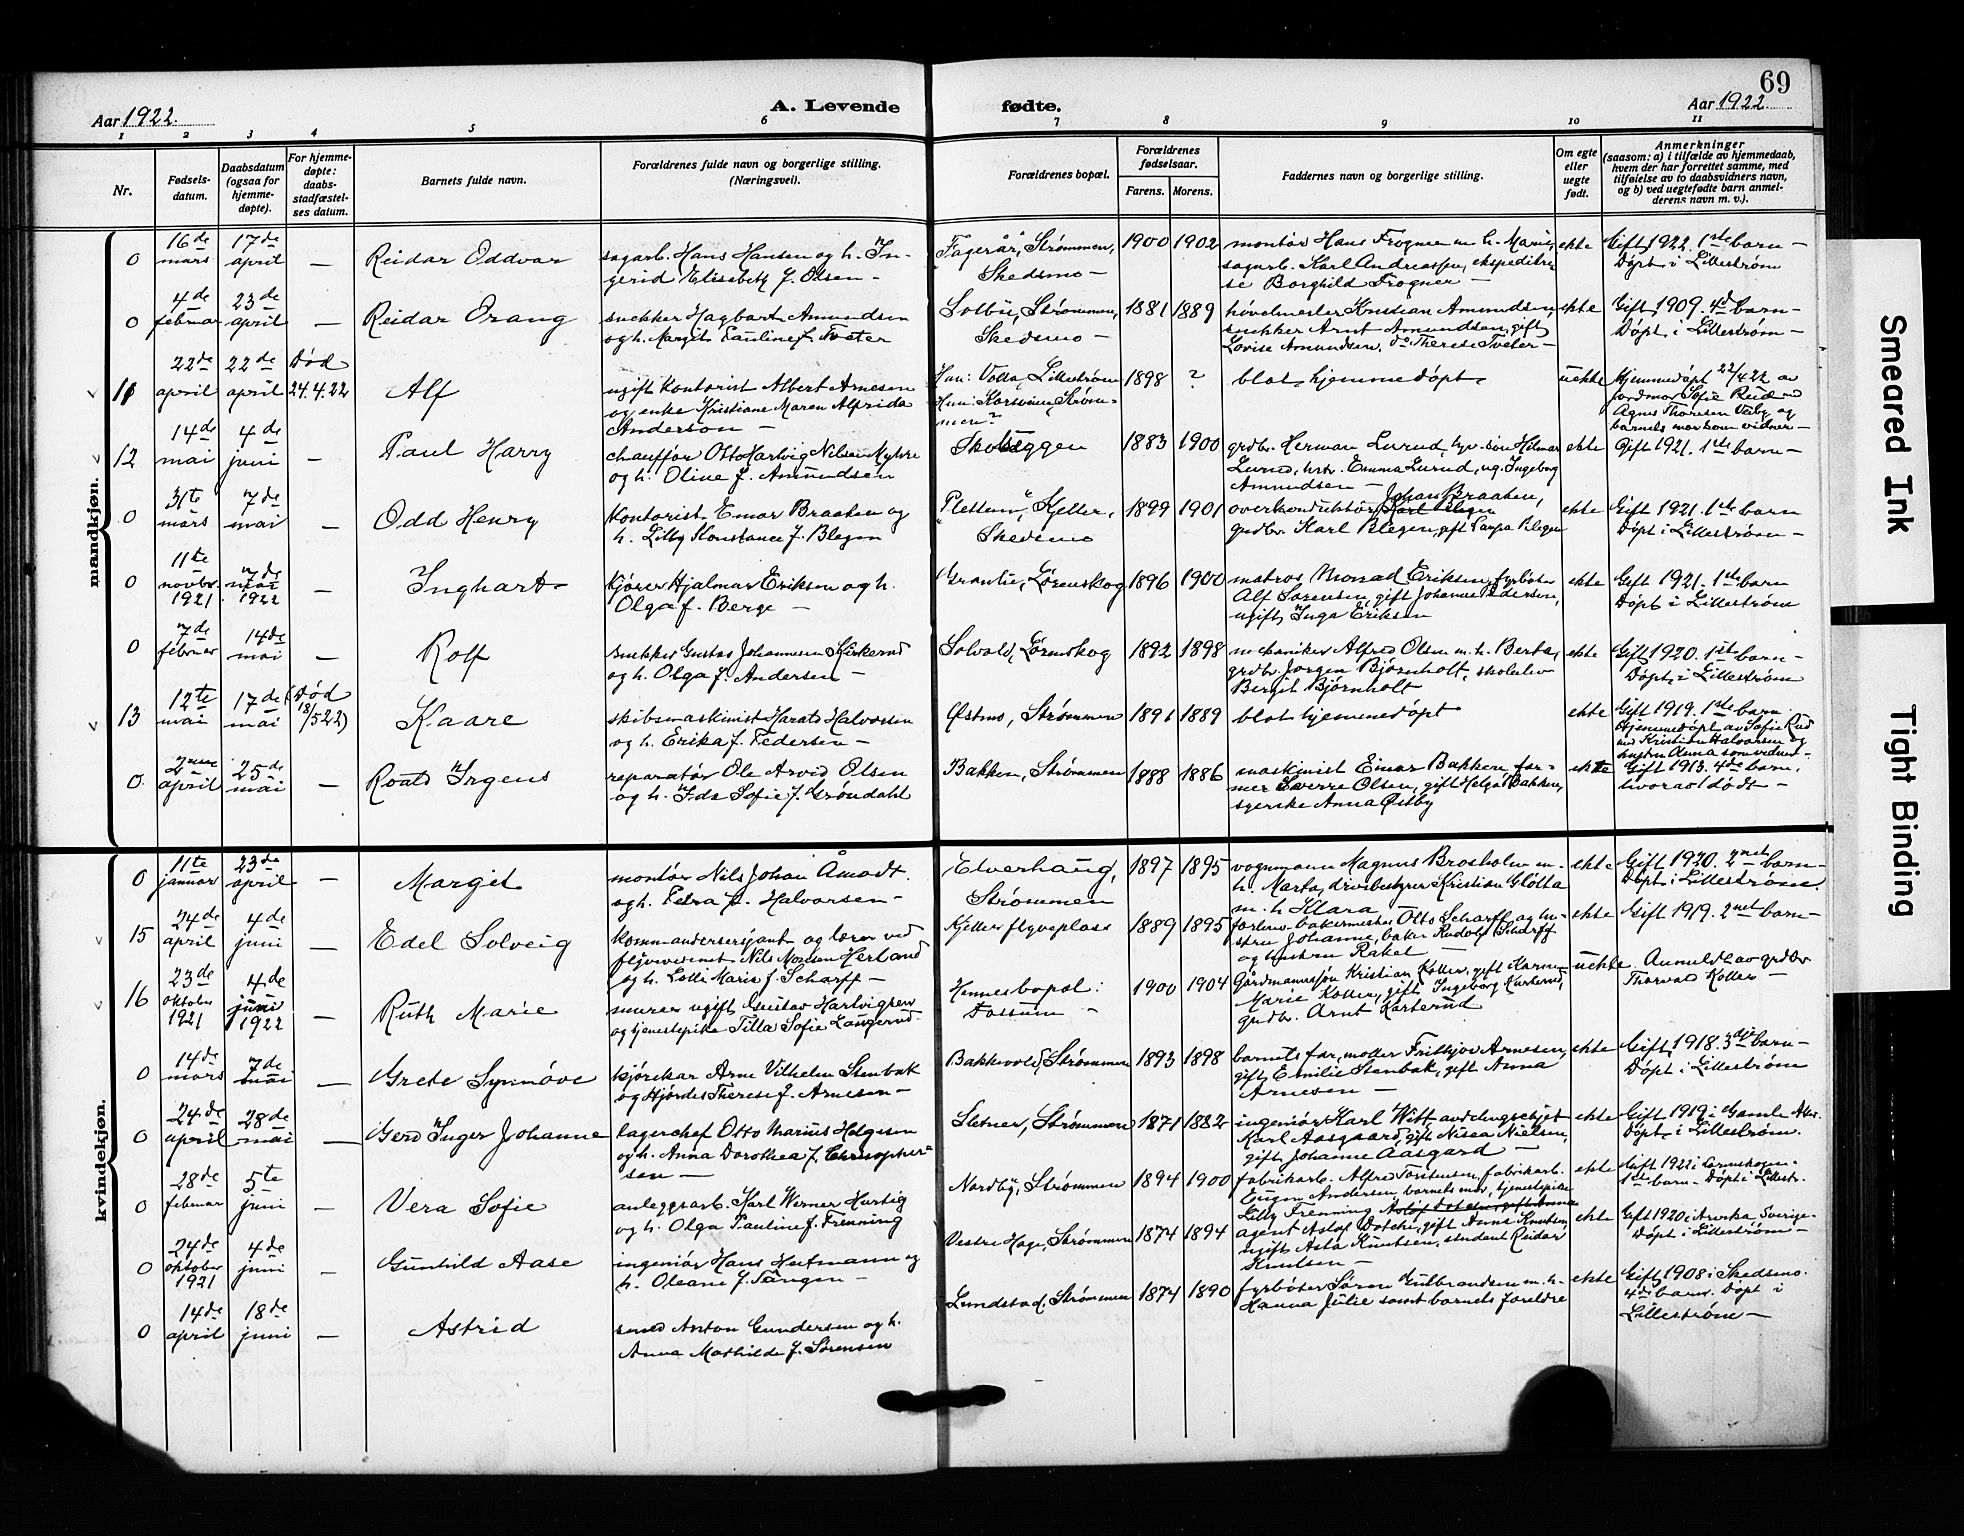 69
Aar 1922.
A. Levende fødte.
Aar 1922
1 2 3 4 5 6 7 8 9 10 11
Nr.
Fødsels-
datum.
Daabsdatum
(ogsaa for
hjemme-
døpte).
For hjemme-
døpte:
daabs-
stadfæstel-
ses datum.
Barnets fulde navn.
Forældrenes fulde navn og borgerlige stilling.
(Næringsvei).
Forældrenes bopæl.
Forældrenes
fødselsaar.
Farens. Morens.
Faddernes navn og borgerlige stilling.
Om egte
eller
uegte
født.
Anmerkninger
(saasom: a) i tilfælde av hjemmedaab,
hvem der har forrettet samme, med
tilføielse av to daabsvidners navn,
og b) ved uegtefødte barn anmel-
derens navn m. v.).
mandkjøn.
0
16de
mars
17de
april
—
Reidar Oddvar
sagarb. Hans Hansen og h. In-
gerid Elisabeth f. Olsen —
"Fagerår", Strømmen,
Skedsmo —
1900 1902
montør Hans Frogner m. h. Marie,
sagarb. Karl Andreassen, ekspeditri-
se Borghild Frogner —
ekte
Gift 1922. 1ste barn —
Døpt i Lillestrøm
0
4de
februar
23de
april
—
Reidar Orang
snekker Hagbart Amundsen
og h. Margit Pauline f. Tveter
Solbu, Strømmen,
Skedsmo —
1881 1889
høvelmester Kristian Amundsen,
snekker Arnt Amundsen, gift
Lovise Amundsen, do Therese Tveter —
ekte
Gift 1909. 4de barn —
Døpt i Lillestrøm —
11
22de
april
22de
april
Død
24.4.22
Alf
ugift kontorist Albert Arnesen
og enke Kristiane Maren Alfrida
Anderson —
Han: Volla, Lillestrøm
Hun: Korsveien, Strøm-
men?
1898 ?
blot hjemmedøpt.
uekte
Hjemmedøpt 22/4 22 av
jordmor Sofie Rud med
Agnes Thoresen og
barnets mor som vidner —
12
14de
mai
4de
juni
—
Paul Harry
chauffør Otto Hartvig Nilsen Myhre
og h. Oline f. Amundsen
Skobeggen
1883 1900
grdbr. Herman Lurud, tyv. søn Hilmar
Lurud, hstr. Emma Lurud, ug. Ingeborg
Amundsen —
ekte
Gift 1921. 1ste barn —
0
31te
mars
7de
mai
—
Odd Henry
kontorist Einar Braaten og
h. Lilly Konstance f. Blegen
"Pletten", Kjeller,
Skedsmo
1899 1901
Johan Braaten,
overkonduktør Karl Blegen
grdbr. Karl Blegen, gift Laura Blegen
ekte
Gift 1921. 1ste barn
Døpt i Lillestrøm —
0
11te
novbr.
1921
7de
mai
1922
—
Inghart
kjører Hjalmar Eriksen og h.
Olga f. Berge —
Granlie, Lørenskog
1896 1900
matros Monrad Eriksen, fyrbøter
Alf Sørensen, gift Johanne Pedersen,
ugift Inga Eriksen
ekte
Gift 1921. 1ste barn
Døpt i Lillestrøm
0
7de
februar
14de
mai
—
Rolf
snekker Gustav Johannesen Kirkerud
og h. Olga f. Andersen —
Solvold, Lørenskog
1892 1898
mekaniker Alfred Olsen m. h. Berta,
grdbr. Jørgen Bjørnholt, skoleelev
Bergit Bjørnholt
ekte
Gift 1920. 1ste barn —
Døpt i Lillestrøm
13
12te
mai
17de
mai
(Død
18/5 22)
Kaare
skibsmaskinist Harald Halvorsen
og h. Erika f. Pedersen —
Østmo, Strømmen
1891 1889
blot hjemmedøpt
ekte
Gift 1919. 1ste barn.
Hjemmedøpt av Sofie Rud
med Kristian Halvorsen og
hustru Anna som vidner —
0
2nen
april
25de
mai
—
Roald Irgens
reparatør Ole Arvid Olsen
og h. Ida Sofie f. Grøndahl
Bakken, Strømmen
1888 1886
maskinist Einar Bakken, for-
mer Sverre Olsen, gift Helga Bakken,
syerske Anna Østby
ekte
Gift 1913. 4de barn,
hvorav 1 dødt —
kvindekjøn.
0
11te
januar
23de
april
—
Margit
montør Nils Johan Åmodt
og h. Petra f. Halvorsen —
Elverhaug,
Strømmen
1897 1895
vognmann Magnus Brosholm m.
h. Marta, driebestyrer Kristian Gløtta
m. h. Klara
ekte
Gift 1920. 2net barn —
Døpt i Lillestrøm.
15
24de
april
4de
juni
—
Edel Solveig
kommandersersjant og lærer ved
flyvevesenet Nils Monsen Herland
og h. Lolli Marie f. Scharff —
Kjeller flyveplass
1889 1895
forhenv. bakermester Otto Scharff og hu-
stru Johanne, baker Rudolf Scharff
og hustru Rakel —
ekte
Gift 1919. 2net barn —
16
23de
oktober
1921
4de
juni
1922
—
Ruth Marie
murer ugift Gustav Hartvigsen
og tjenestepike Tilla Sofie Langerud.
Hennes bopæl:
Fossum —
1900 1904
Gårdmannssøn Kristian Koller, gift Karen
Marie Koller, gift Ingeborg Karterud,
grdbr. Arnt Karterud
uekte
Anmeldt av grdbr.
Thorvald Koller —
0
14de
mars
7de
mai
—
Grete Synnøve
kjørekar Arne Vilhelm Stenbak
og Hjørdis Therese f. Arnesen —
Bakkevold, Strømmen
1893 1898
barnets far, møller Frithjov Arnesen,
gift Emilie Stenbak, gift Anna
Arnesen —
ekte
Gift 1918. 3dje barn —
Døpt i Lillestrøm
0
24de
april
28de
mai
—
Gerd Inger Johanne
lagerchef Otto Marius Helgesen
og h. Anna Dorothea f. Christopher-
sen —
Sletner, Strømmen
1871 1882
ingeniør Karl Witt, avdelingschef
Karl Aasgaard, gift Nisea Nielsen,
gift Johanne Aasgard —
ekte
Gift 1919 i Gamle Aker.
Døpt i Lillestrøm.
0
28de
februar
5te
juni
—
Vera Sofie
anleggsarb. Karl Werner Hartig
og h. Olga Pauline f. Frenning
Nordby, Strømmen
1894 1900
fabrikarb. Alfred Torstensen, fabrikarb.
Eugen Andersen, barnets mor, tjenestepike
Lilly Frenning
ekte
Gift 1922 i Lørenskogen —
1ste barn — Døpt i Lillestr.
0
24de
oktober
1921
4de
juni
—
Gunhild Aase
ingeniør Hans Hertmann og
h. Oleane f. Tangen —
Vestre Hage, Strømmen
1874 1894
agent Aslof Dotche, gift Anna Knutsen,
ugift Asta Knutsen, student Reidar
Knutsen —
ekte
Gift 1920 i Arvika Sverige —
Døpt i Lillestrøm —
0
14de
april
18de
juni
—
Astrid
smed Anton Gundersen og h.
Anna Mathilde f. Sørensen
Lundstad, Strømmen
1874 1890
fyrbøter Søren Gulbrandsen m. h.
Hanna Julie samt barnets foreldre
ekte
Gift 1908 i Skedsmo.
4de barn. Døpt i
Lillestrøm —
Smeared Ink
Tight Binding